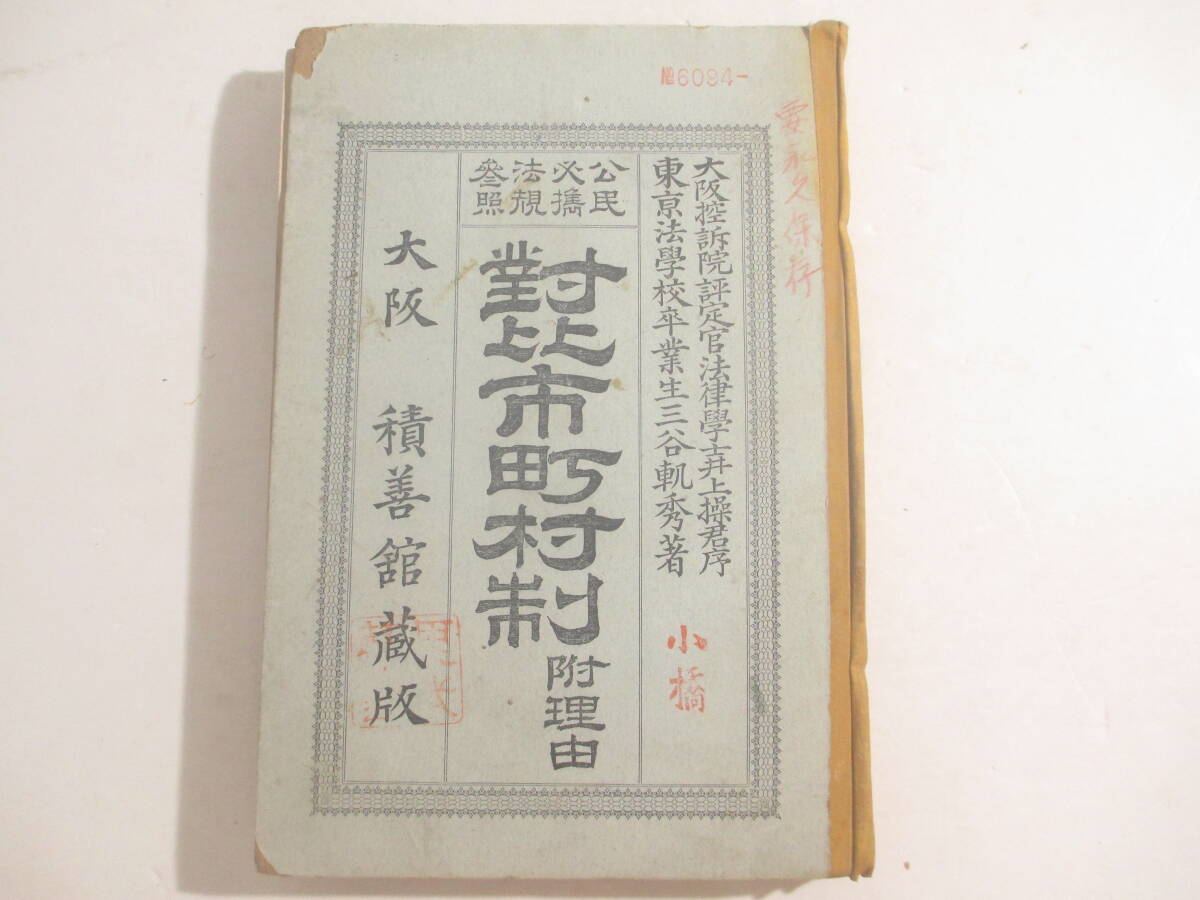 6094-
要永久保存
大阪控訴院評定官法律學士井上操君序
東京法學校卒業生三谷軌秀著
小橋
公民
必携
法規
參照
對比市町村制
附理由
大阪 積善舘蔵版